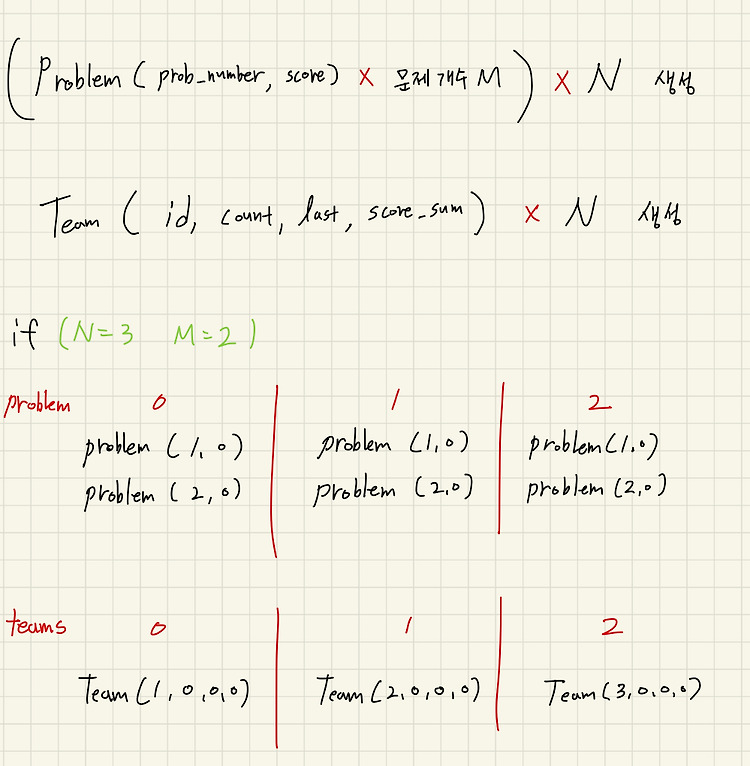 ( Problem ( prob_number, score) x 문제 개수 M ) x N 생성
Team ( id, count, last, score_sum ) x N 생성
if (N=3 M=2)
problem 0 1 2
problem (1, 0) problem (1,0) problem(1,0)
problem ( 2, 0) problem (2,0) problem (2,0)
teams 0 1 2
Team(1, 0, 0, 0) Team(2,0,0,0) Team(3,0,0,0)